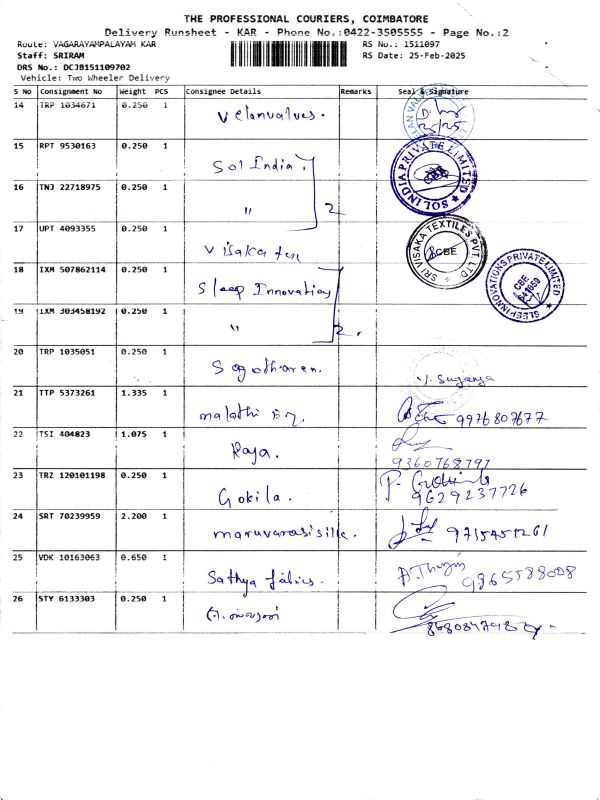 THE PROFESSIONAL COURIERS, COIMBATORE
Delivery Runsheet - KAR - Phone No.:0422-3505555 - Page No.:2
Route: VAGARAYAMPALAYAM KAR RS No.: 1511097
Staff: SRIRAM RS Date: 25-Feb-2025
DRS No.: DCJB151109702
Vehicle: Two Wheeler Delivery
S No Consignment No Weight PCS Consignee Details Remarks Seal & Signature
14 TRP 1034671 0.250 1 Velanvalves.
15 RPT 9530163 0.250 1 Sol India SOL INDIA PRIVATE LIMITED
16 TNJ 22718975 0.250 1 " 2
17 UPT 4093355 0.250 1 Visaka tex SRI VISAKA TEXTILES PVT. LTD CBE
18 IXM 507862114 0.250 1 Sleep Innovation SLEEP INNOVATIONS PRIVATE LIMITED CBE 641659
19 IXM 303458192 0.250 1 " 2.
20 TRP 1035051 0.250 1 Sogotharen. V. Suganya
21 TTP 5373261 1.335 1 malathi 9976807677
22 TSI 404823 1.075 1 Raja. 9360768797
23 TRZ 120101198 0.250 1 Gokila. 9629237726
24 SRT 70239959 2.200 1 maruvarasisilk. 9715451261
25 VDK 10163063 0.650 1 Sathya fabics. 9865588008
26 STY 6133303 0.250 1